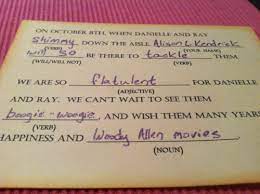 ON OCTOBER 8TH, WHEN DANIELLE AND RAY
shimmy DOWN THE AISLE Alison C. Kendrick
(VERB) (YOUR NAME)
will so BE THERE TO tackle THEM
(WILL/WILL NOT) (VERB)
WE ARE SO flatulent FOR DANIELLE
(ADJECTIVE)
AND RAY. WE CAN'T WAIT TO SEE THEM
boogie-woogie AND WISH THEM MANY YEARS
(VERB)
HAPPINESS AND Woody Allen movies
(NOUN)